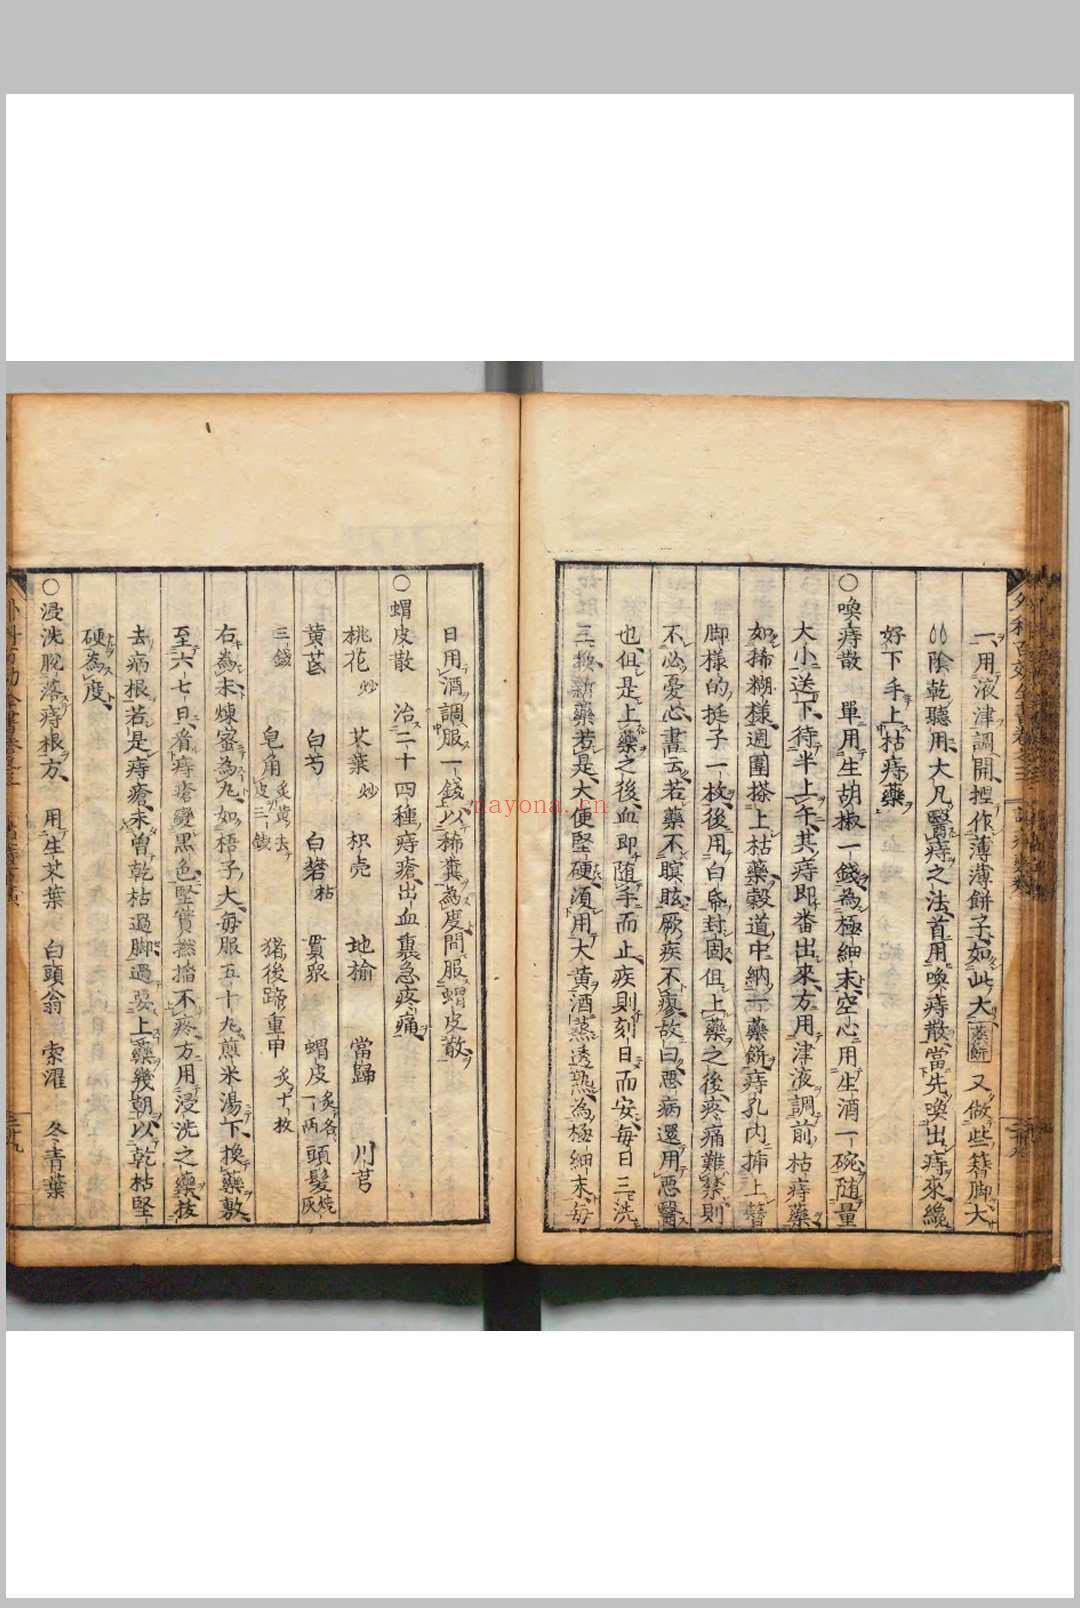 一用液津調開捏作薄薄餅子如此大藥餅又做些簪脚大
陰乾聽用大凡醫痔之法首用喚痔散當先喚出痔來纔
好下手上枯痔藥
○喚痔散　單用生胡椒一錢為極細末空心用生酒一碗随量
大小送下待半上午其痔即番出來方用津液調前枯痔藥
如稀糊樣週圍搽上枯藥穀道中納一藥餅痔孔内挿上簪
脚樣的挺子一枚後用白帋封固但上藥之後疼痛難禁則
不必憂心書云若藥不瞑眩厥疾不瘳故曰惡病還用惡醫
也但是上藥之後血即随手而止疾則刻日而安毎日三洗
三換新藥若是大便堅硬須用大黄酒蒸透熟為極細末毎
日用酒調服一錢以稀糞為度間服蝟皮散
○蝟皮散　治二十四種痔瘡出血裏急疼痛
桃花炒　艾葉炒　枳壳　地榆　當歸　川芎
黄芪　白芍　白礬枯　貫衆　蝟皮炙各一兩　頭髮燒灰
三錢　皂角炙黄去皮三錢　猪後蹄重甲炙十枚
右為末煉蜜為丸如梧子大毎服五十丸煎米湯下換藥敷
至六七日看痔瘡變黒色堅實撚搐不疼方用浸洗之藥拔
去病根若是痔瘡未曾乾枯過脚過要上藥幾朝以乾枯堅
硬為度
○浸洗脫落痔根方　用生艾葉　白頭翁　索濯　冬青葉
nayona.cn